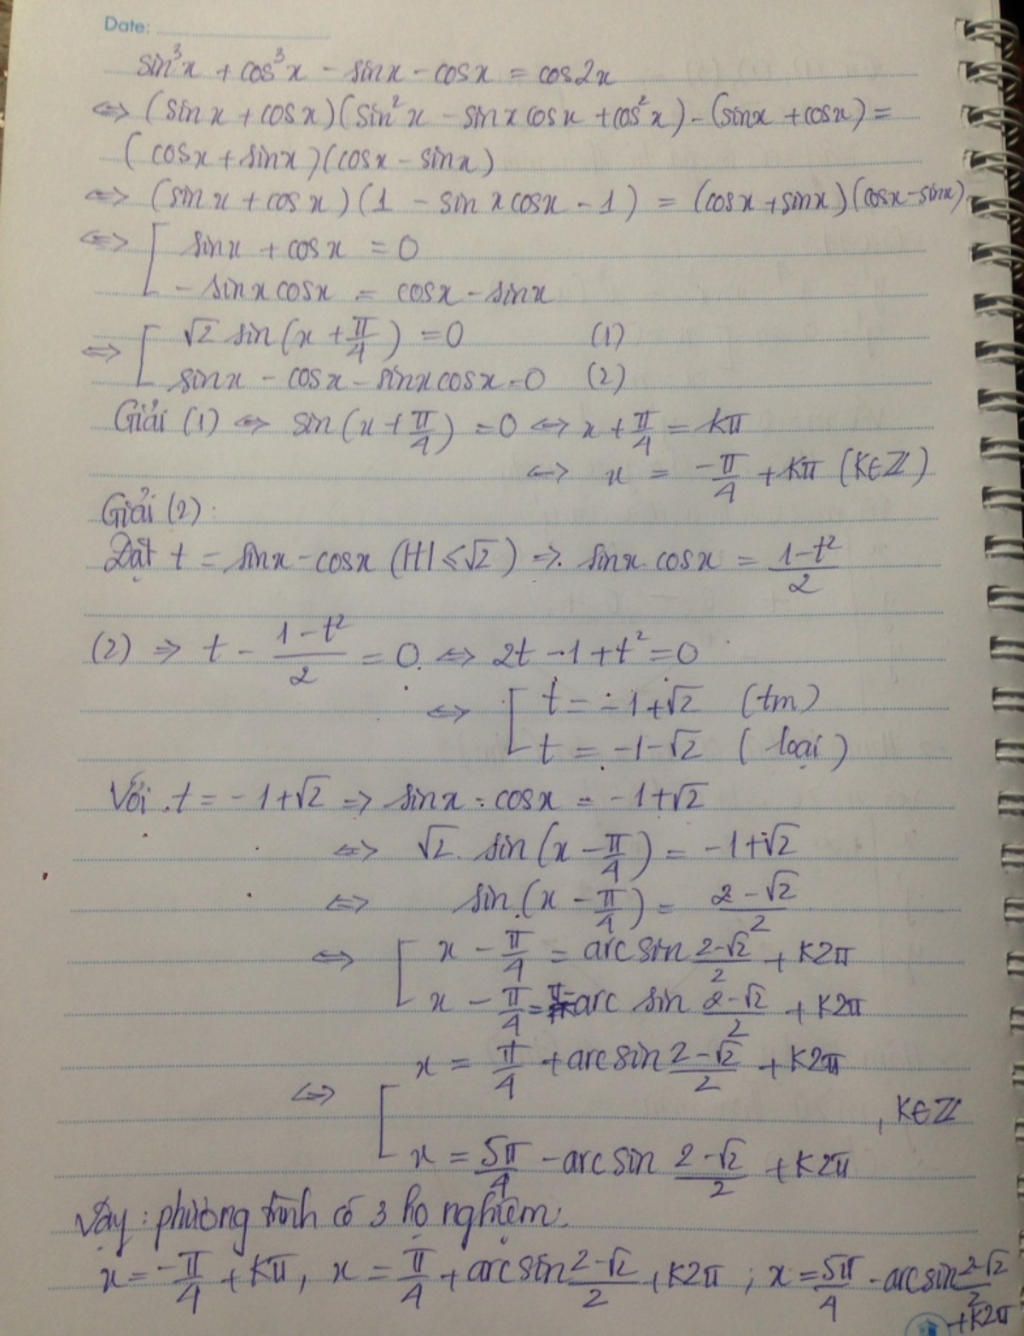 Date:
sin³x + cos³x - sinx - cosx = cos2x
⇔ (sinx + cosx)(sin²x - sinxcosx + cos²x) - (sinx + cosx) =
(cosx + sinx)(cosx - sinx)
⇔ (sinx + cosx)(1 - sinxcosx - 1) = (cosx + sinx)(cosx - sinx)
⇔ [ sinx + cosx = 0
- sinxcosx = cosx - sinx
⇔ [ √2 sin(x + π/4) = 0 (1)
sinx - cosx - sinxcosx = 0 (2)
Giải (1) ⇔ sin(x + π/4) = 0 ⇔ x + π/4 = kπ
⇔ x = -π/4 + kπ (k∈Z)
Giải (2):
Đặt t = sinx - cosx (|t| ≤ √2) ⇒ sinx.cosx = (1-t²)/2
(2) ⇒ t - (1-t²)/2 = 0 ⇔ 2t - 1 + t² = 0
⇔ [ t = -1+√2 (tm)
t = -1-√2 (loại)
Với t = -1+√2 ⇒ sinx - cosx = -1+√2
⇔ √2. sin(x - π/4) = -1+√2
⇔ sin(x - π/4) = (2-√2)/2
⇔ [ x - π/4 = arcsin (2-√2)/2 + k2π
x - π/4 = π - arc sin (2-√2)/2 + k2π
x = π/4 + arcsin (2-√2)/2 + k2π
⇔ [ , k∈Z
x = 5π/4 - arcsin (2-√2)/2 + k2π
Vậy: phương trình có 3 họ nghiệm:
x = -π/4 + kπ, x = π/4 + arcsin (2-√2)/2 + k2π ; x = 5π/4 - arcsin (2-√2)/2
+ k2π